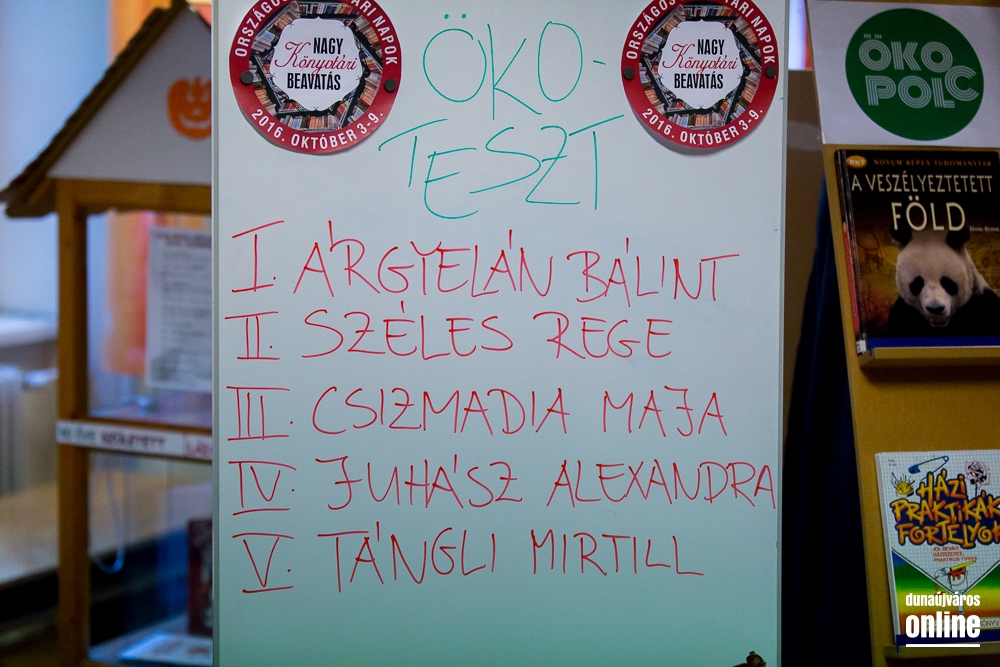 ORSZÁGOS KÖNYVTÁRI NAPOK
NAGY
Könyvtári
BEAVATÁS
2016. OKTÓBER 3-9.
ORSZÁGOS KÖNYVTÁRI NAPOK
NAGY
Könyvtári
BEAVATÁS
2016. OKTÓBER 3-9.
ÖKO-
TESZT
I. ÁRGYELÁN BÁLINT
II. SZÉLES REGE
III. CSIZMADIA MAJA
IV. JUHÁSZ ALEXANDRA
V. TÁNGLI MIRTILL
ÖKO
POLC
NOVUM KÉPES TUDOMÁNYTÁR
A VESZÉLYEZTETETT
FÖLD
HÁZI
PRAKTIKÁK
FORTÉLYOK
dunaújváros
online